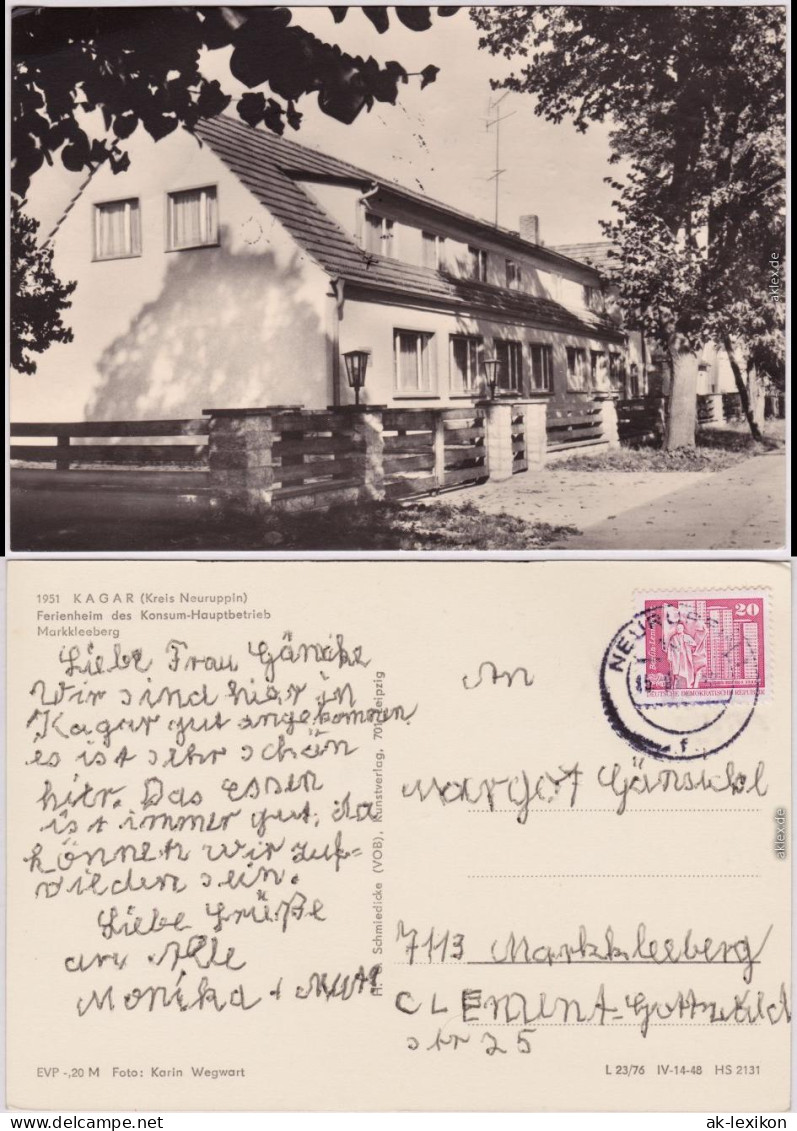 aklex.de
1951 KAGAR (Kreis Neuruppin)
Ferienheim des Konsum-Hauptbetrieb
Markkleeberg
Liebe Frau Gänsike
Wir sind hier in
Kagar gut angekommen
es ist sehr schön
hier. Das Essen
ist immer gut, da
können wir zuf=
rieden sein.
Liebe Grüße
an Alle
Monika +
EVP -,20 M Foto: Karin Wegwart
Schmiedicke (VOB), Kunstverlag, 701 Leipzig
NEURUPP
20
Berlin-Len
DEUTSCHE DEMOKRATISCHE REPUBLIK
f
An
Margot Gänsickl
7113 Markkleeberg
CLEMENT-Gottwald
str 25
L 23/76 IV-14-48 HS 2131
aklex.de
ak-lexikon.de ak-lexikon.com